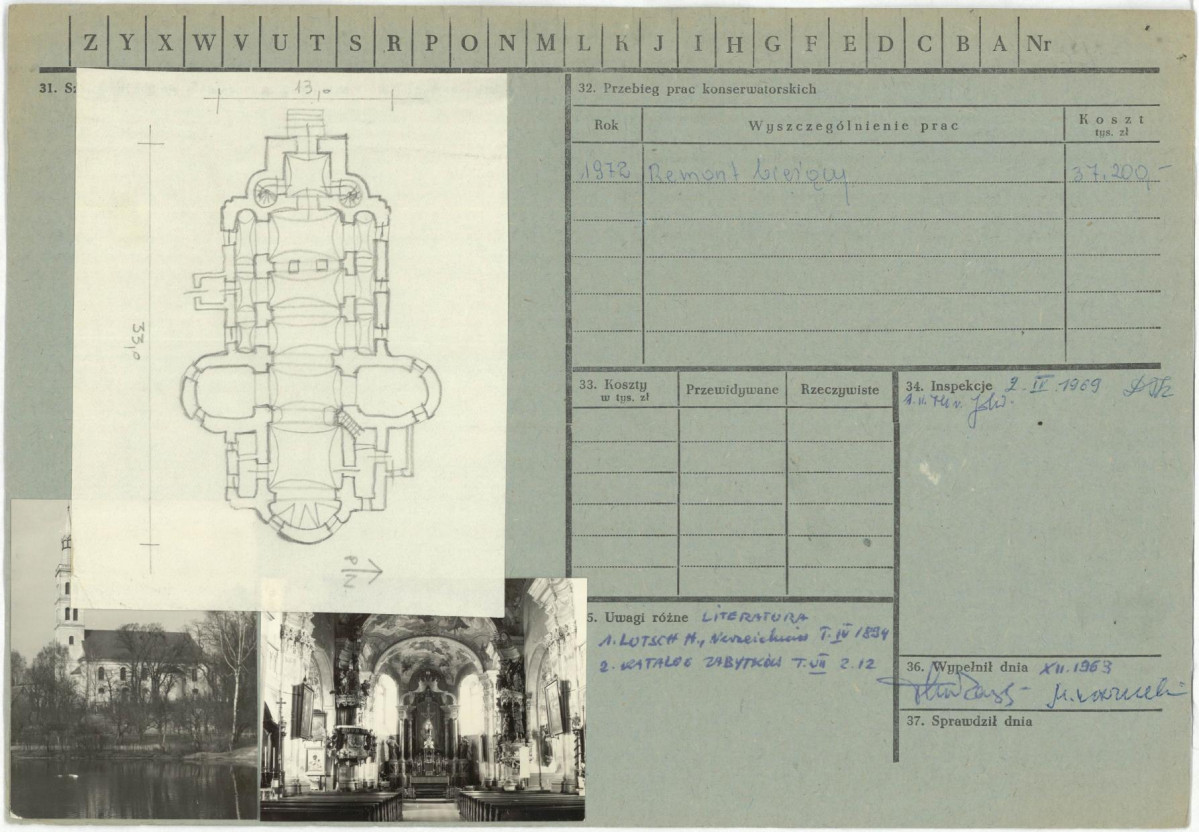 Z Y X W V U T S R P O N M L K J I H G F E D C B A Nr
31. S
13,0
33,0
32. Przebieg prac konserwatorskich
Rok Wyszczególnienie prac Koszt
tys. zł
1972 Remont bieżący 37.200,-
33. Koszty
w tys. zł
Przewidywane Rzeczywiste
34. Inspekcje 2. IV 1969
5. Uwagi różne LITERATURA
1. LUTSCH H., Verzeichnis T. IV 1894
2. KATALOG ZABYTKÓW T. VII Z. 12
36. Wypełnił dnia XII.1963
37. Sprawdził dnia